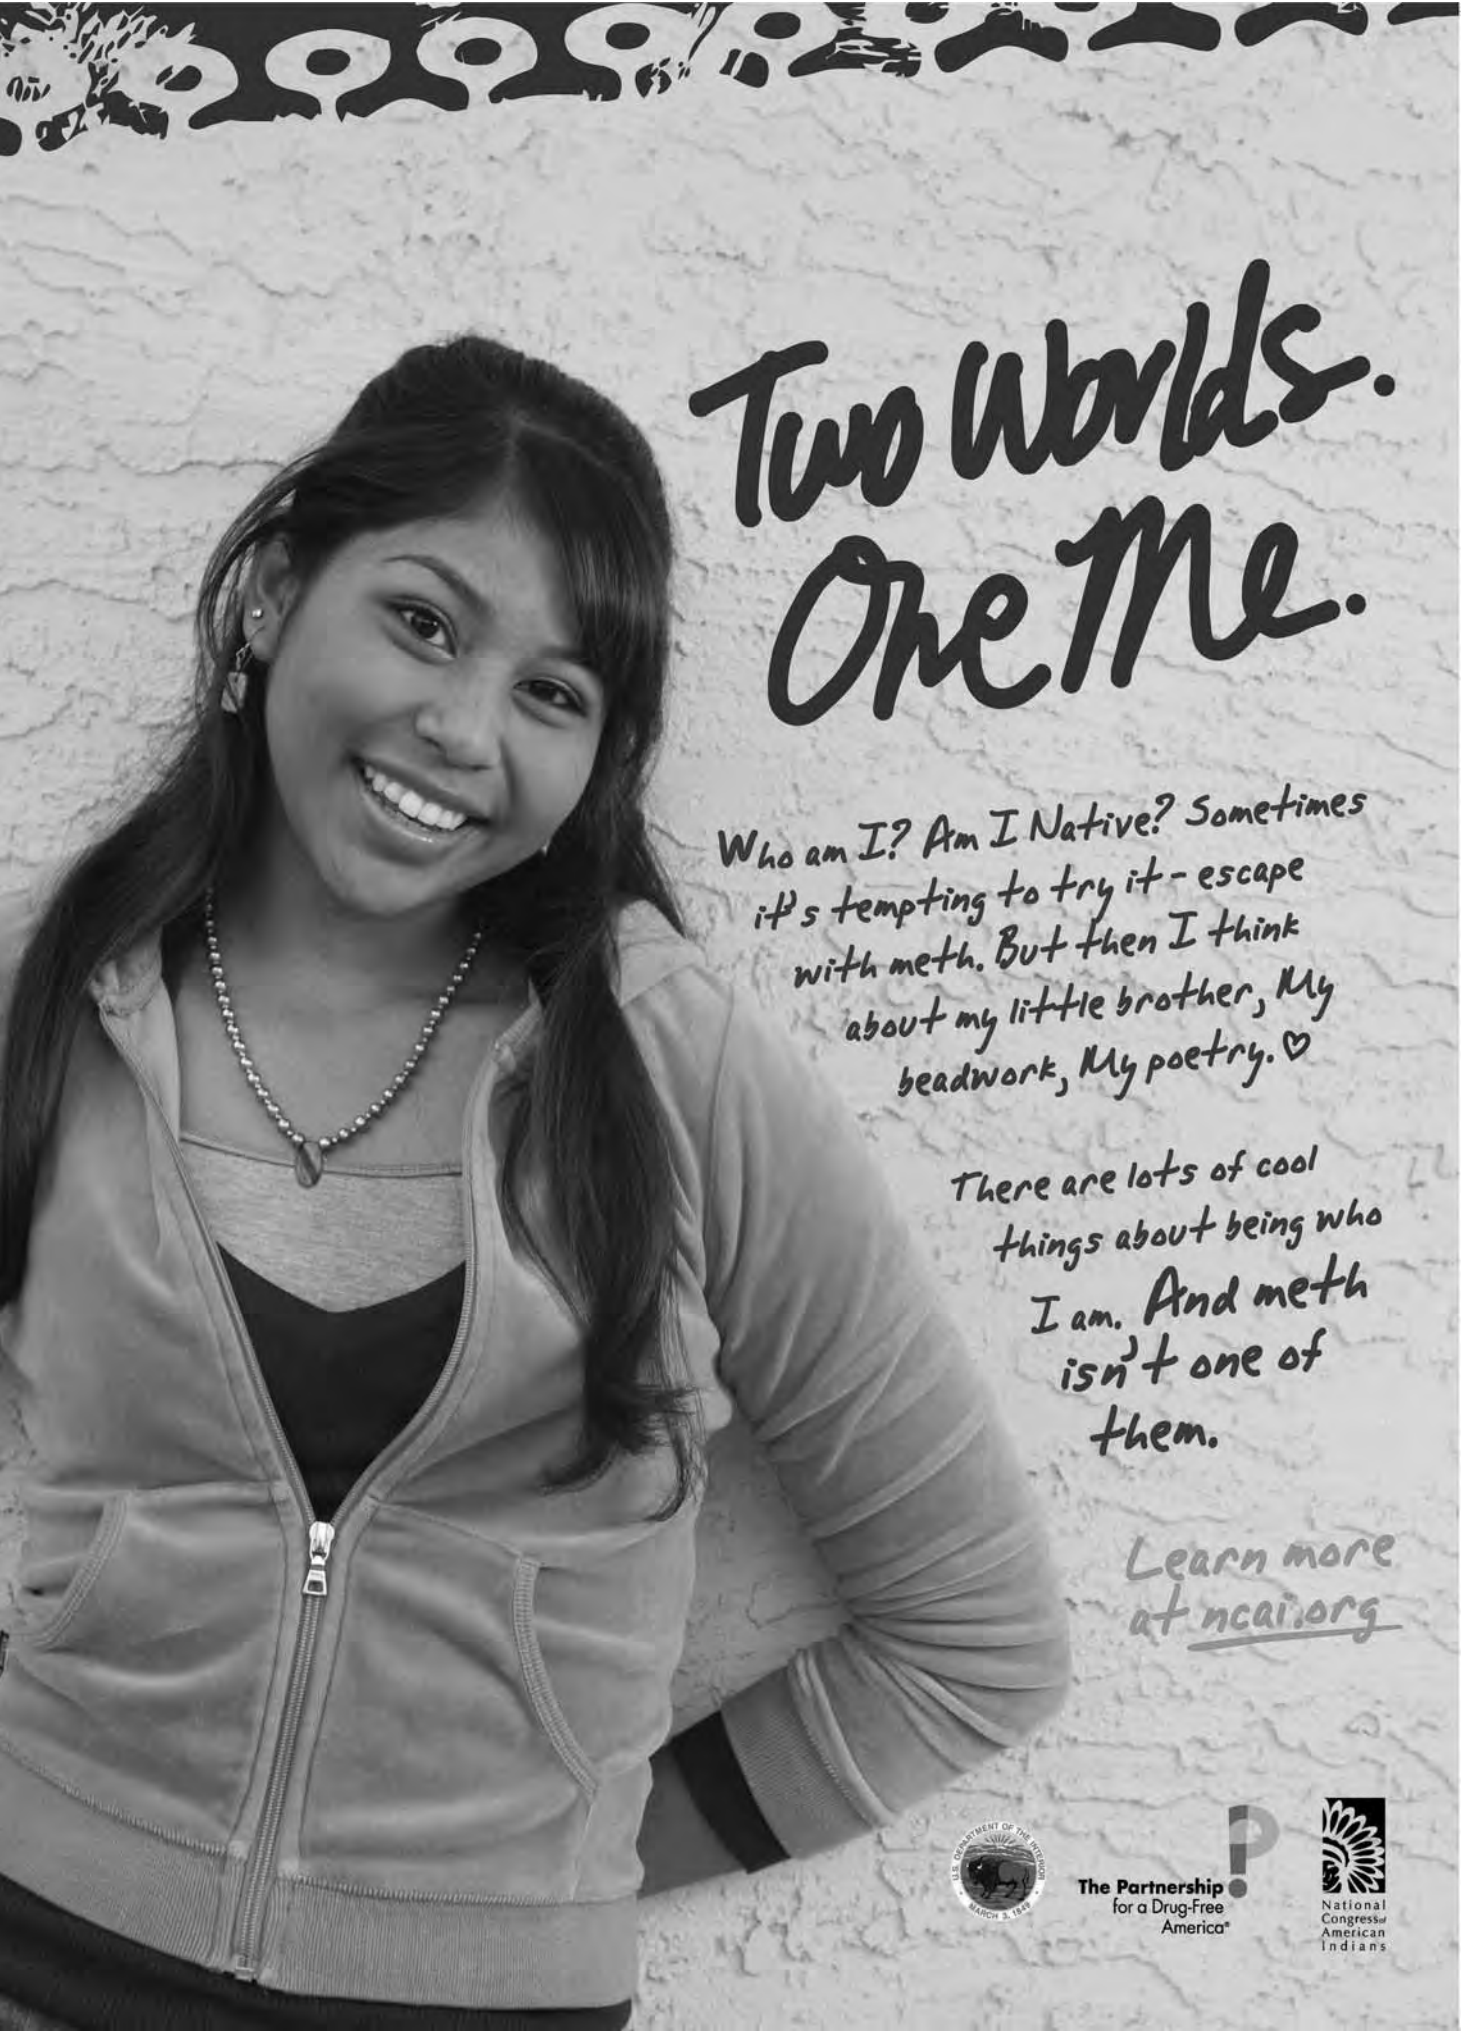 Two Worlds.
One Me.
Who am I? Am I Native? Sometimes
it's tempting to try it - escape
with meth. But then I think
about my little brother, My
beadwork, My poetry. ♡
There are lots of cool
things about being who
I am. And meth
isn't one of
them.
Learn more
at ncai.org
U.S. DEPARTMENT OF THE INTERIOR
MARCH 3, 1849
The Partnership
for a Drug-Free
America®
National
Congress of
American
Indians